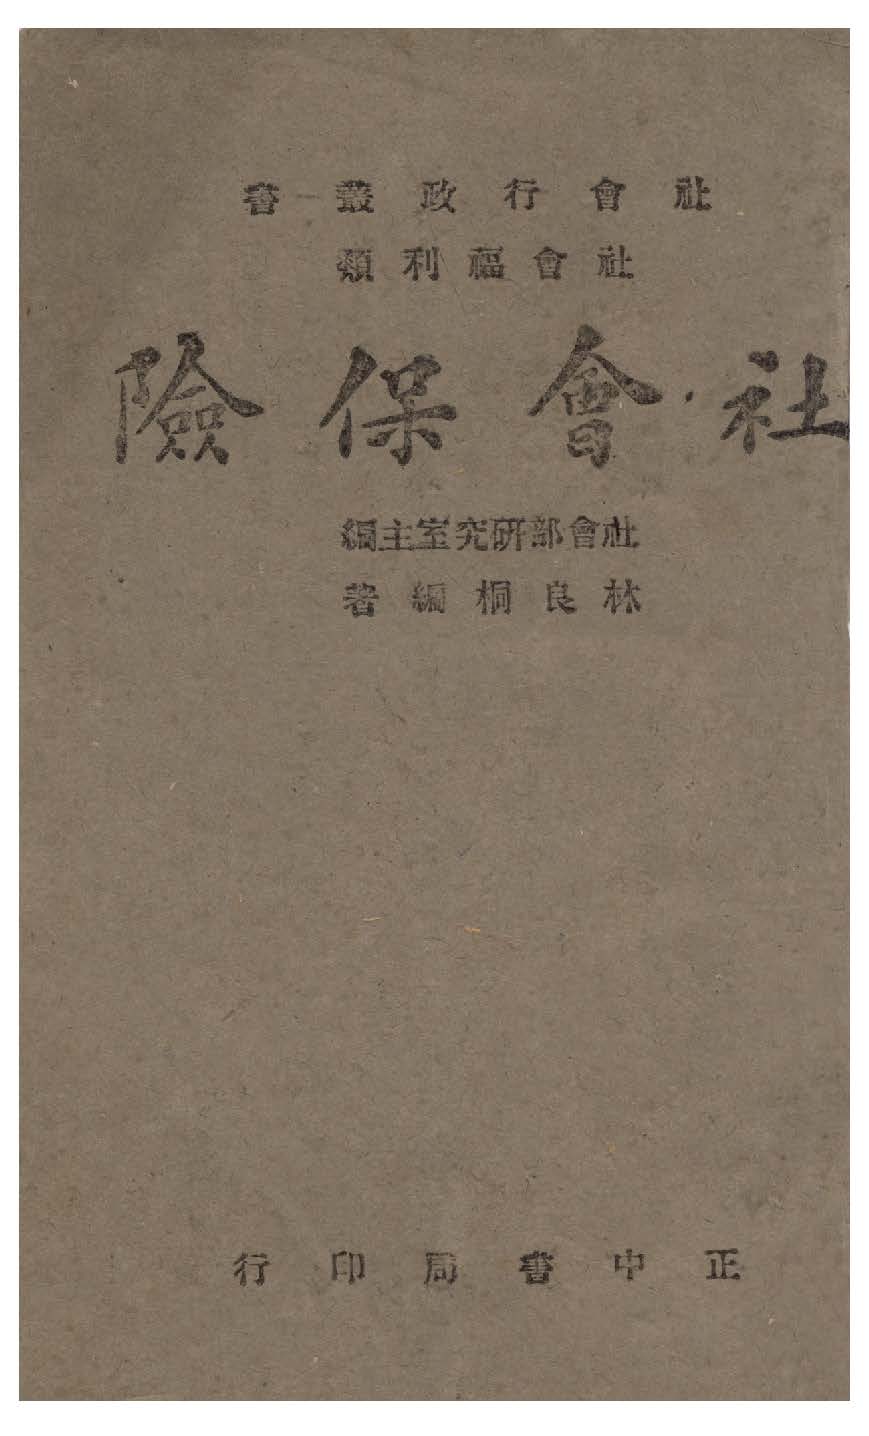 社會行政叢書
社會福利類
社會保險
社會部研究室主編
林良桐編著
正中書局印行